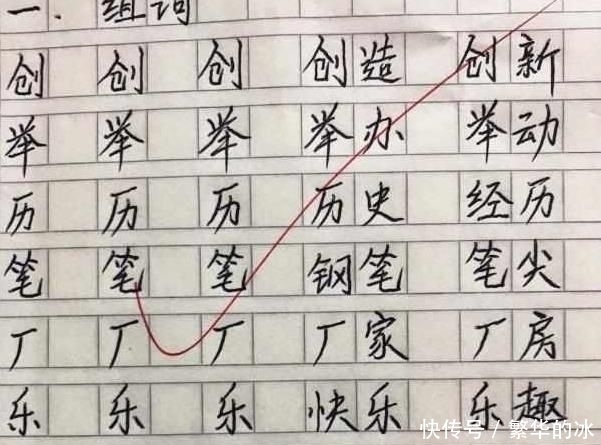 一. 组词
创 创 创 创造 创新
举 举 举 举办 举动
历 历 历 历史 经历
笔 笔 笔 钢笔 笔尖
厂 厂 厂 厂家 厂房
乐 乐 乐 快乐 乐趣
快传号 / 繁华的冰